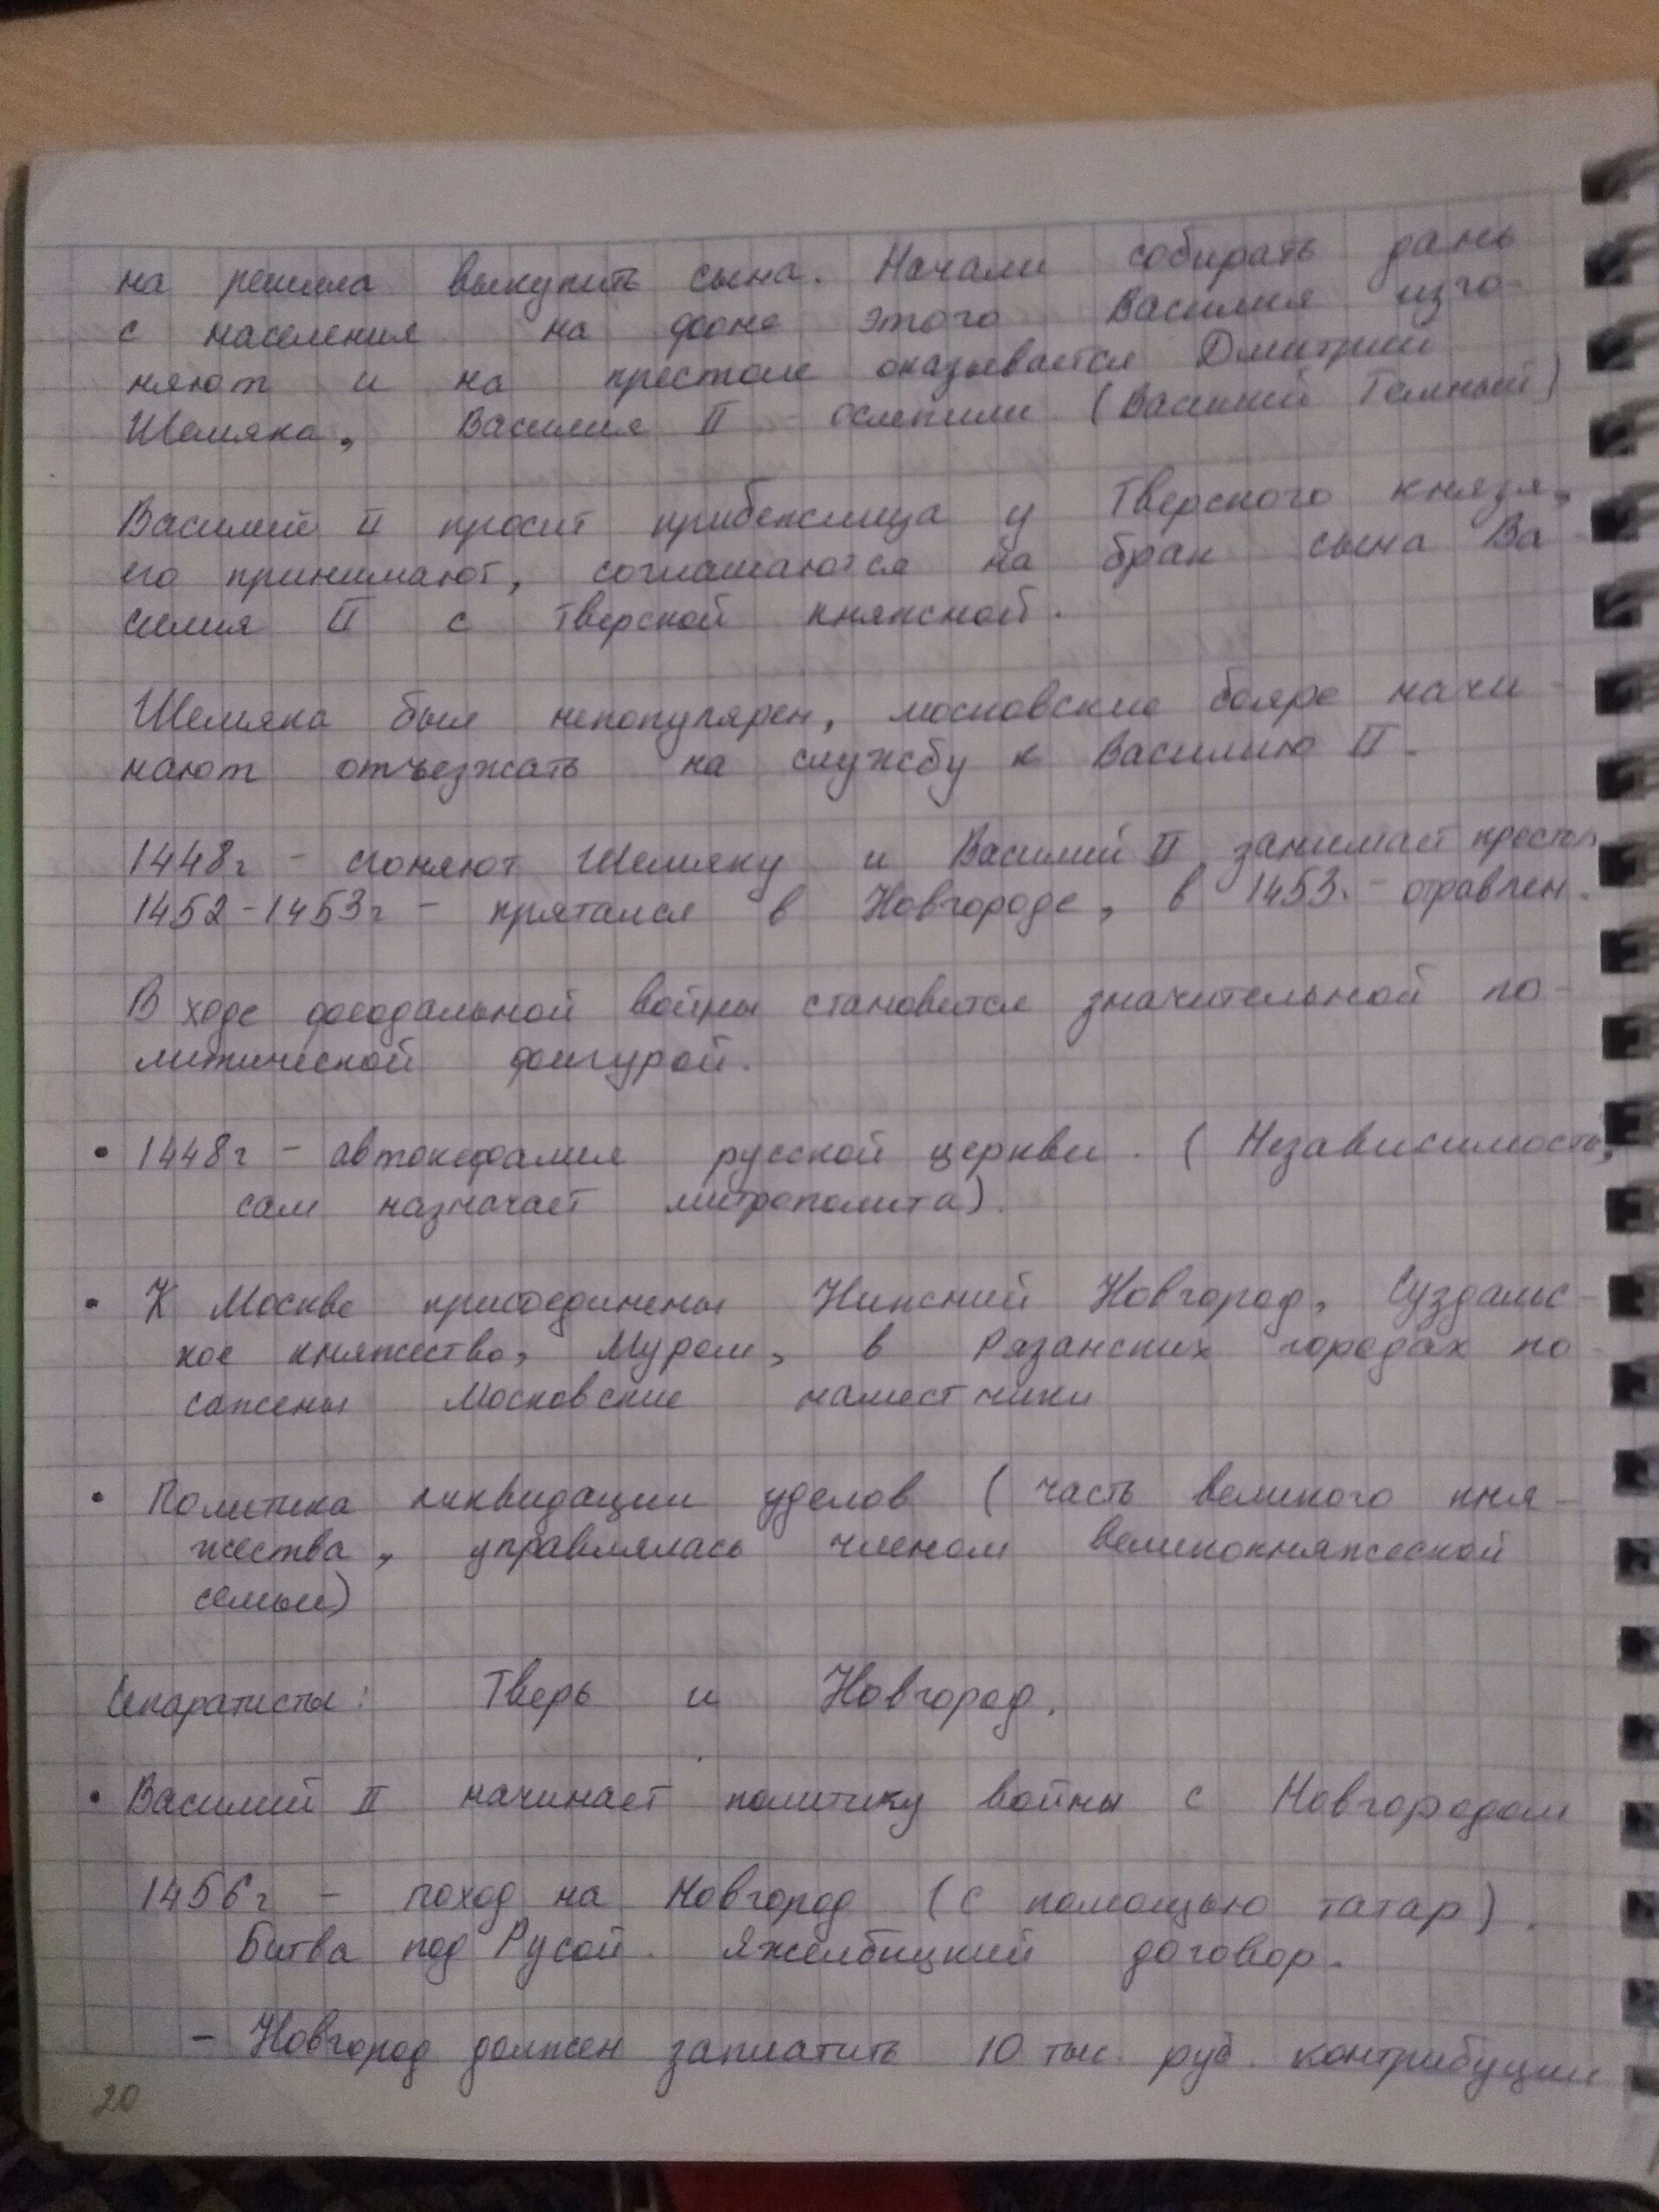 на решила выкупить сына. Начали собирать дань
с населения на фоне этого Василия изго-
няют и на престоле оказывается Дмитрий
Шемяка, Василия II - ослепили (Василий Темный)
Василий II просит прибежища у Тверского князя,
его принимают, соглашаются на брак сына Ва-
силия II с Тверской княжной.
Шемяка был непопулярен, московские бояре начи-
нают отъезжать на службу к Василию II.
1448г - сгоняют Шемяку и Василий II занимает престол
1452-1453г - прятался в Новгороде, в 1453. - отравлен.
В ходе феодальной войны становится значительной по-
литической фигурой.
• 1448г - автокефалия русской церкви. (Независимость,
сам назначает митрополита).
• К Москве присоединены Нижний Новгород, Суздальс-
кое княжество, Муром, в Рязанских городах по-
сажены Московские наместники
• Политика ликвидации уделов (часть великого кня-
жества, управлялась членом великокняжеской
семьи)
Сепаратисты: Тверь и Новгород.
• Василий II начинает политику войны с Новгородом
1456г - поход на Новгород (с помощью татар).
Битва под Русой. Яжелбицкий договор.
- Новгород должен заплатить 10 тыс. руб. контрибуции
20